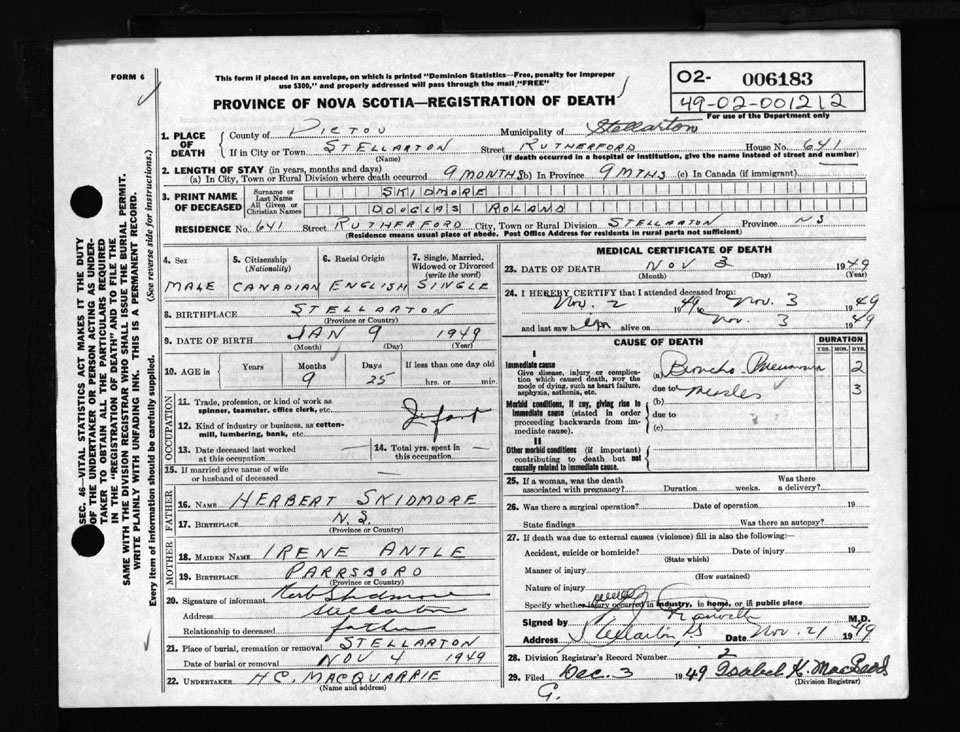 FORM 6
This form if placed in an envelope, on which is printed "Dominion Statistics—Free, penalty for improper
use $300," and properly addressed will pass through the mail "FREE"
PROVINCE OF NOVA SCOTIA—REGISTRATION OF DEATH
02- 006183
49-02-001212
For use of the Department only
1. PLACE OF DEATH
County of PICTOU Municipality of Stellarton
If in City or Town STELLARTON Street RUTHERFORD House No. 641
(Name) (If death occurred in a hospital or institution, give the name instead of street and number)
2. LENGTH OF STAY (in years, months and days)
(a) In City, Town or Rural Division where death occurred 9 MONTHS (b) In Province 9 MTHS (c) In Canada (if immigrant)
3. PRINT NAME OF DECEASED
Surname or Last Name SKIDMORE
All Given or Christian Names DOUGLAS ROLAND
RESIDENCE No. 641 Street RUTHERFORD City, Town or Rural Division STELLARTON Province NS
(Residence means usual place of abode. Post Office Address for residents in rural parts not sufficient)
4. Sex MALE
5. Citizenship (Nationality) CANADIAN
6. Racial Origin ENGLISH
7. Single, Married, Widowed or Divorced (write the word) SINGLE
8. BIRTHPLACE STELLARTON
(Province or Country)
9. DATE OF BIRTH JAN 9 1949
(Month) (Day) (Year)
10. AGE in Years Months 9 Days 25 If less than one day old hrs. or min.
OCCUPATION
11. Trade, profession, or kind of work as spinner, teamster, office clerk, etc.
Infant
12. Kind of industry or business, as cotton-mill, lumbering, bank, etc.
13. Date deceased last worked at this occupation
14. Total yrs. spent in this occupation.
15. If married give name of wife or husband of deceased
FATHER
16. NAME HERBERT SKIDMORE
17. BIRTHPLACE N.S.
(Province or Country)
MOTHER
18. MAIDEN NAME IRENE ANTLE
19. BIRTHPLACE PARRSBORO
(Province or Country)
20. Signature of informant Herb Skidmore
Address Stellarton
Relationship to deceased father
21. Place of burial, cremation or removal STELLARTON
Date of burial or removal NOV 4 1949
22. UNDERTAKER H.C. MACQUARRIE
(Name and address)
MEDICAL CERTIFICATE OF DEATH
23. DATE OF DEATH NOV 3 1949
(Month) (Day) (Year)
24. I HEREBY CERTIFY that I attended deceased from:
Nov. 2 1949 to Nov. 3 1949
and last saw him alive on Nov. 3 1949
CAUSE OF DEATH DURATION
YRS. MOS. DYS.
I
Immediate cause
Give disease, injury or complication which caused death, NOT the mode of dying, such as heart failure, asphyxia, asthenia, etc.
(a) Broncho Pneumonia 2
due to Measles 3
Morbid conditions, if any, giving rise to immediate cause (stated in order proceeding backwards from immediate cause).
(b)
due to
(c)
II
Other morbid conditions (if important) contributing to death but not causally related to immediate cause.
25. If a woman, was the death associated with pregnancy? Duration weeks. Was there a delivery?
26. Was there a surgical operation? Date of operation 19
State findings Was there an autopsy?
27. If death was due to external causes (violence) fill in also the following:
Accident, suicide or homicide? Date of injury 19
(State which)
Manner of injury
(How sustained)
Nature of injury
Specify whether injury occurred in industry, in home, or in public place
Signed by M.D.
Address Stellarton, NS Date Nov. 21 1949
28. Division Registrar's Record Number 2
29. Filed Dec. 3 1949 Isabel K. MacLeod
(Division Registrar)
G.
SEC. 46—VITAL STATISTICS ACT MAKES IT THE DUTY
OF THE UNDERTAKER OR PERSON ACTING AS UNDER-
TAKER TO OBTAIN ALL THE PARTICULARS REQUIRED
IN THE "REGISTRATION OF DEATH" AND TO FILE THE
SAME WITH THE DIVISION REGISTRAR WHO SHALL ISSUE THE BURIAL PERMIT.
WRITE PLAINLY WITH UNFADING INK. THIS IS A PERMANENT RECORD.
Every item of information should be carefully supplied. (See reverse side for instructions.)